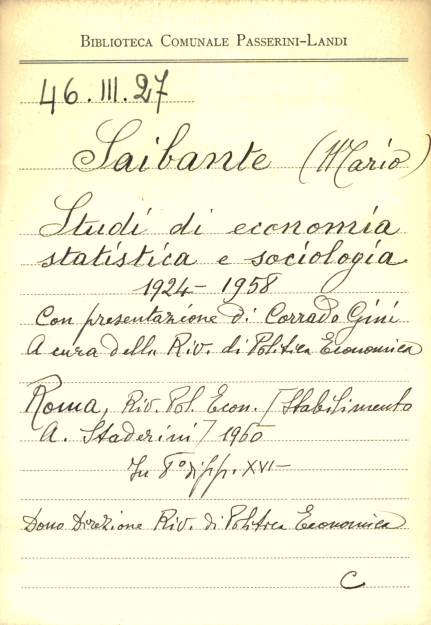 BIBLIOTECA COMUNALE PASSERINI-LANDI
46.III.27
Saibante (Mario)
Studi di economia
statistica e sociologia
1924-1958
Con presentazione di Corrado Gini
A cura della Riv. di Politica Economica
Roma, Riv. Pol. Econ. [Stabilimento
A. Staderini] 1960
In 8° di pp. XVI-
Dono Direzione Riv. di Politica Economica
C